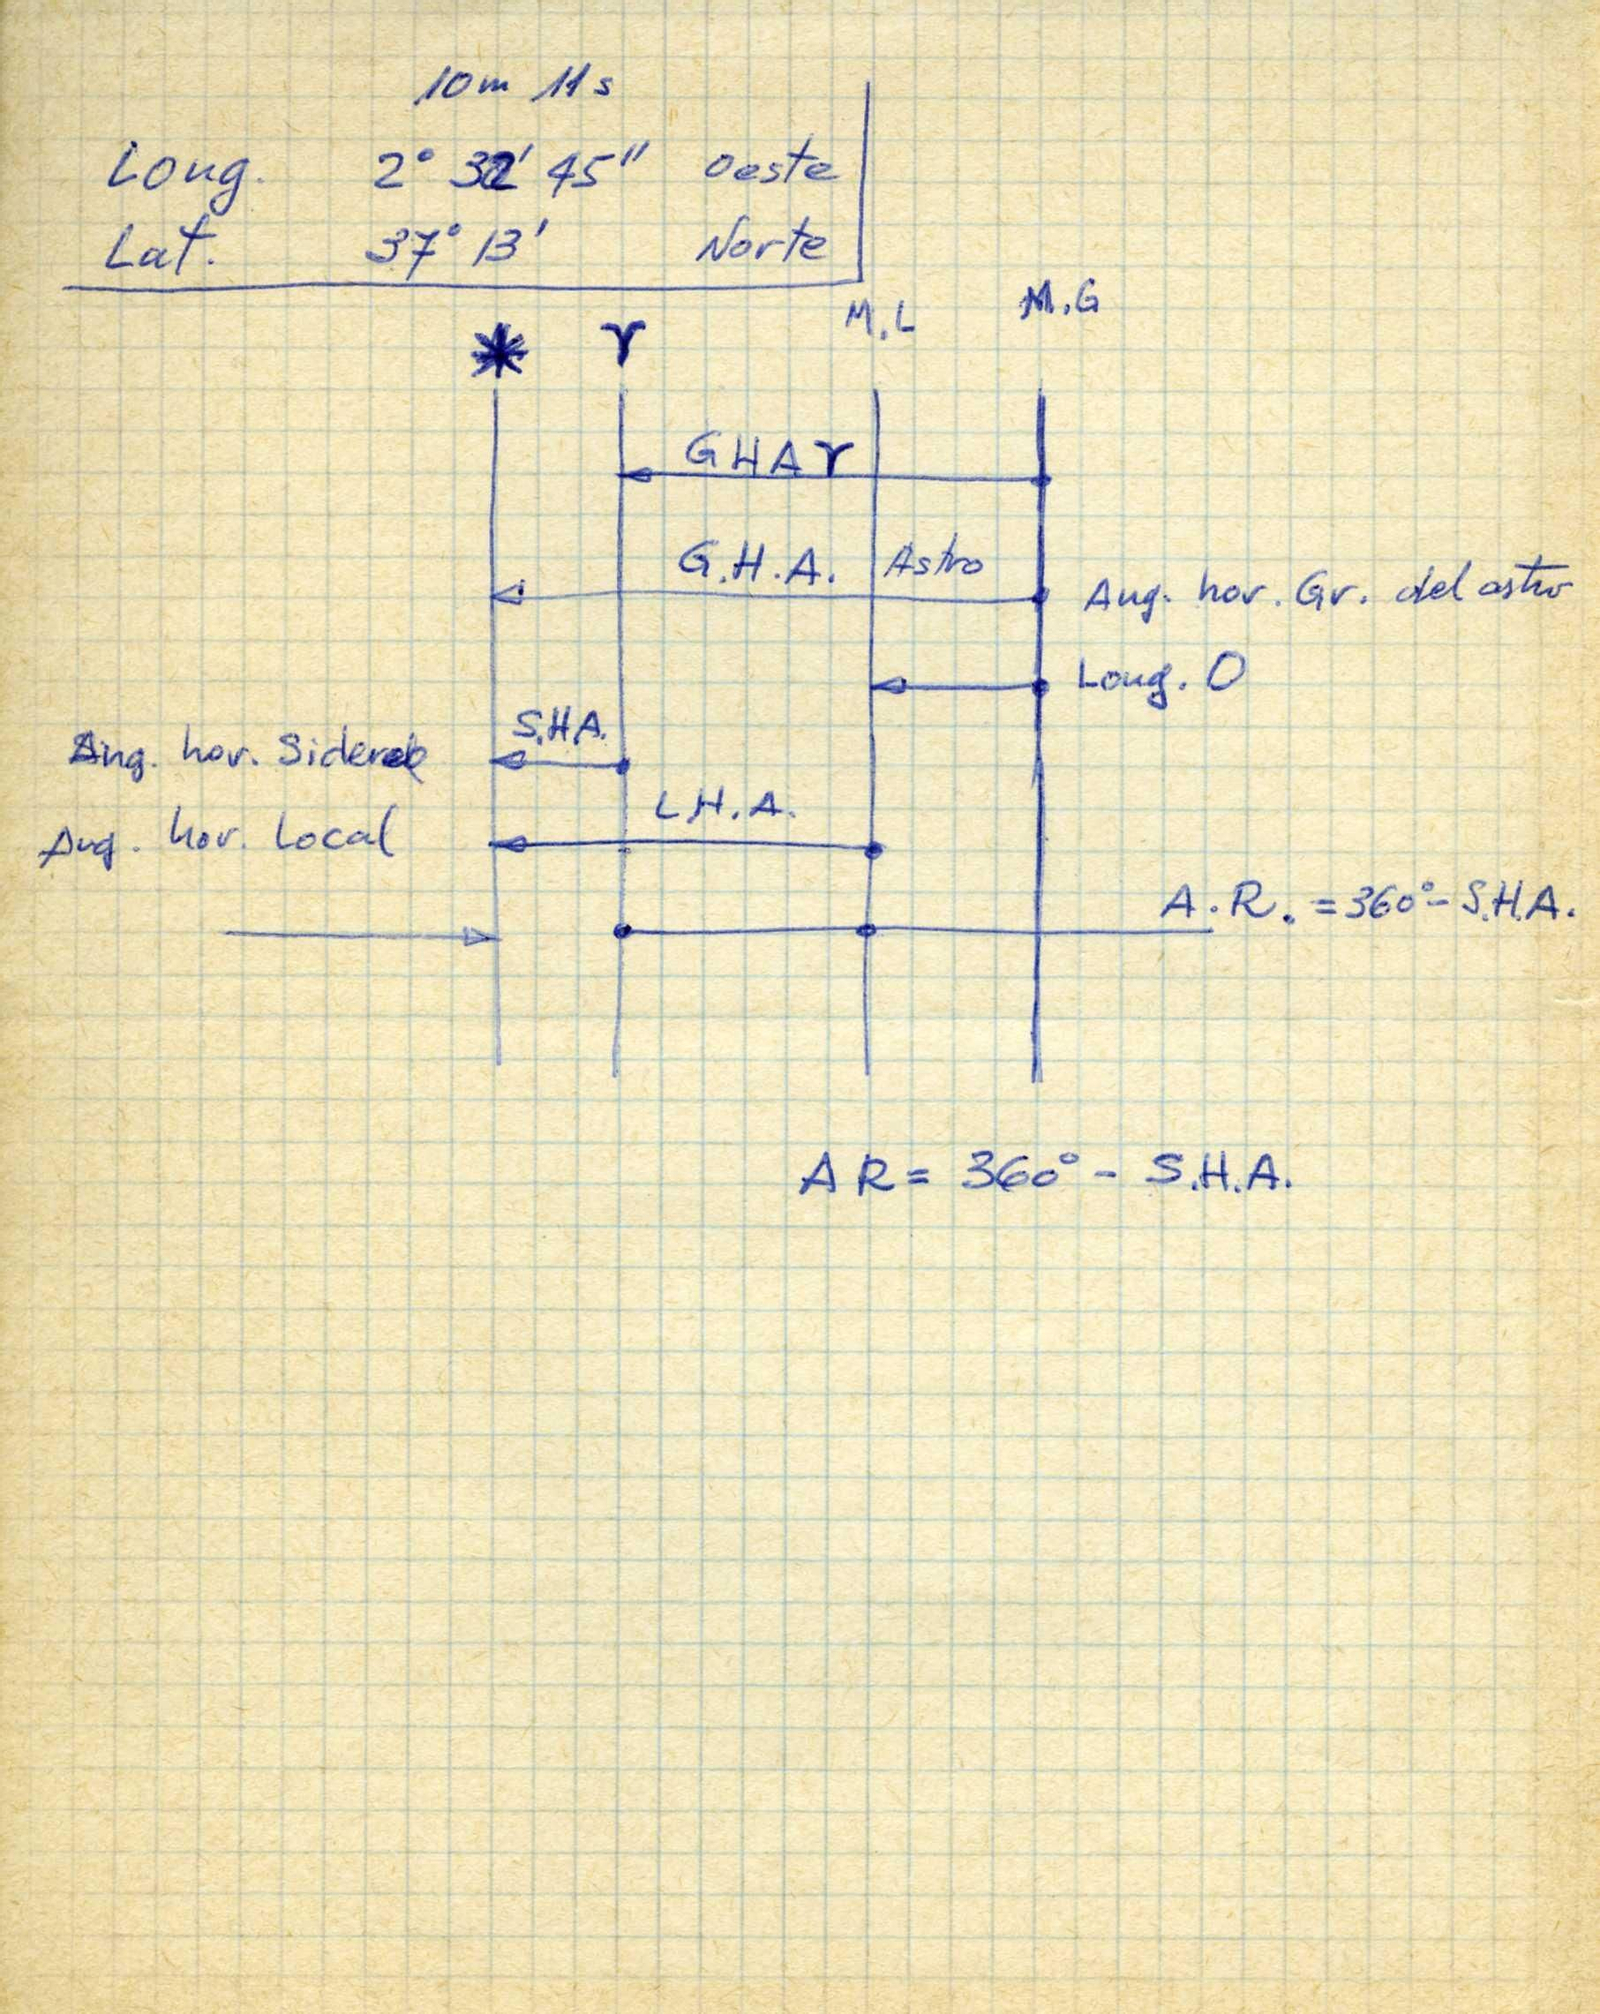 10m 11s
Long. 2° 32' 45" Oeste
Lat. 37° 13' Norte
M.L M.G
* ♈
GHA♈
G.H.A. Astro Ang. hor. Gr. del astro
Long. O
S.H.A.
Ang. hor. Sideral
L.H.A.
Ang. hor. Local
A.R. = 360° - S.H.A.
AR = 360° - S.H.A.